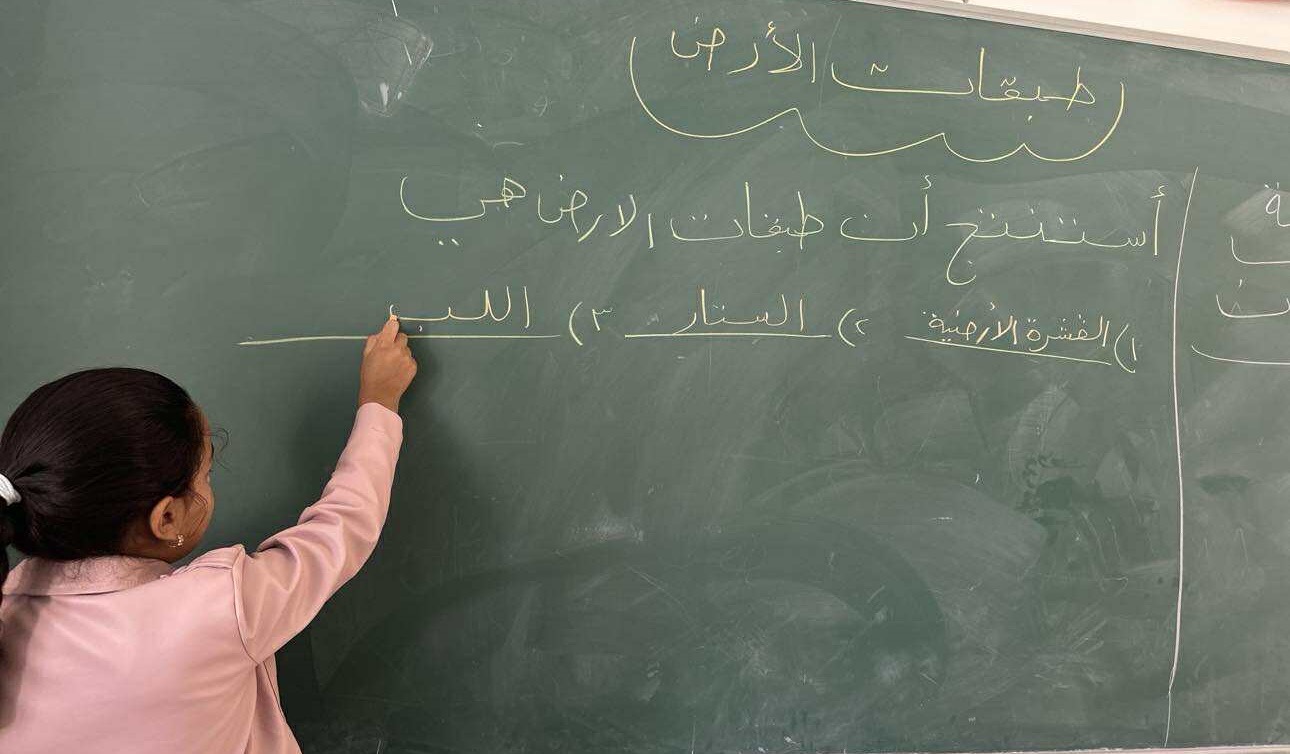 طبقات الأرض
أستنتج أن طبقات الارض هي
١) القشرة الأرضية ٢) الستار ٣) اللب